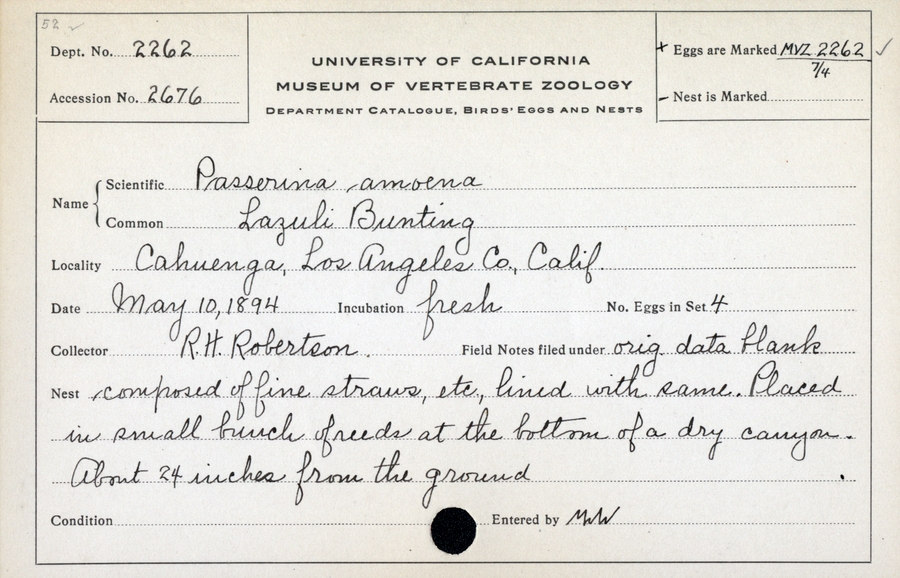 52 ✓
Dept. No. 2262
Accession No. 2676
UNIVERSITY OF CALIFORNIA
MUSEUM OF VERTEBRATE ZOOLOGY
DEPARTMENT CATALOGUE, BIRDS' EGGS AND NESTS
+ Eggs are Marked MVZ 2262 ✓
7/4
- Nest is Marked
Name { Scientific Passerina amoena
Common Lazuli Bunting
Locality Cahuenga, Los Angeles Co., Calif.
Date May 10, 1894 Incubation fresh No. Eggs in Set 4
Collector R.H. Robertson. Field Notes filed under orig data blank
Nest composed of fine straws, etc, lined with same. Placed
in small bunch of reeds at the bottom of a dry canyon.
About 24 inches from the ground.
Condition Entered by